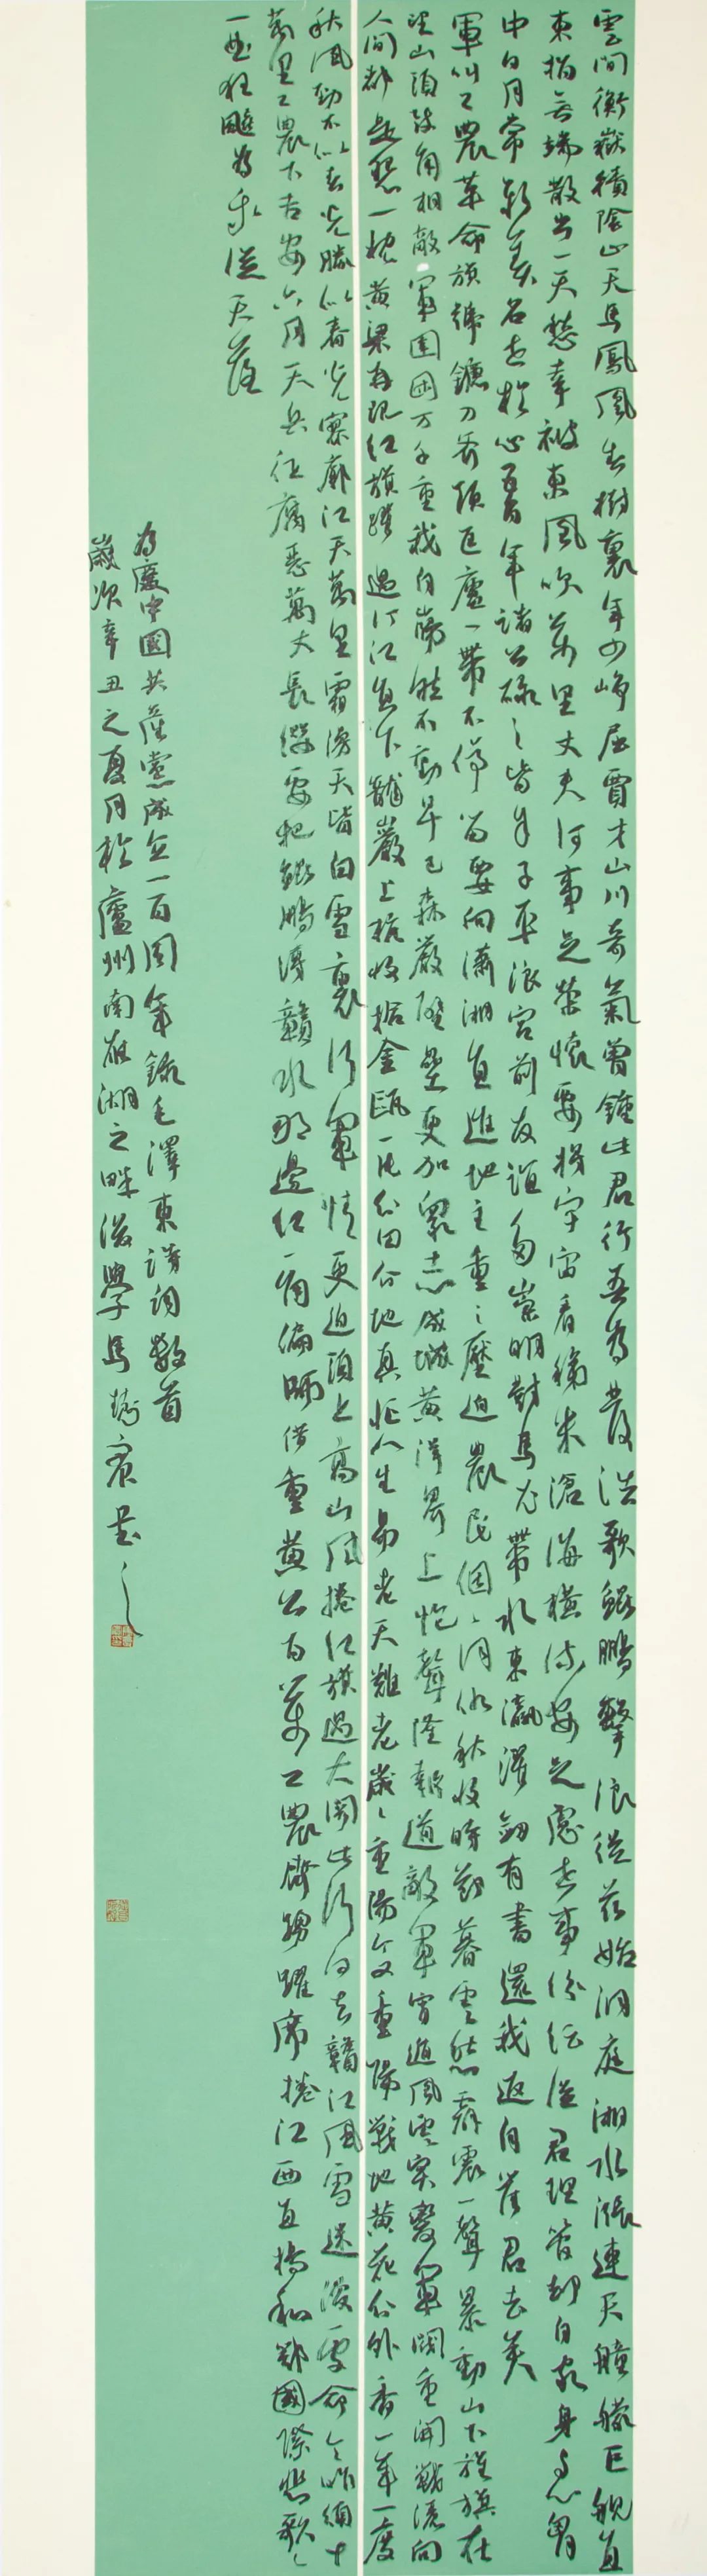 雲間衡嶽積陰止天馬鳳凰春樹裏年少崢屈賈才山川奇氣曾鍾此君行吾為發浩歌鯤鵬擊浪從茲始洞庭湘水漲連天艟艨巨艦直
東指無端散出一天愁幸被東風吹萬里丈夫何事足縈懷要將宇宙看稊米滄海橫流安足慮世事紛紜從君理管卻自家身與心胸
中日月常新美名世於心五百年諸公碌々皆余子平浪宮前友誼多崇明對馬衣帶水東瀛濯劍有書還我返自崖君去矣
軍叫工農革命旗號鐮刀斧頭匡廬一帶不停留要向瀟湘直進地主重々壓迫農民個々同仇秋收時節暮雲愁霹靂一聲暴動山下旌旗在
望山頭鼓角相敵軍圍困萬千重我自巋然不動早已森嚴壁壘更加眾志成城黃洋界上炮聲隆報道敵軍宵遁風雲突變軍閥重開戰灑向
人間都是怨一枕黃粱再現紅旗躍過汀江直下龍巖上杭收拾金甌一片分田分地真忙人生易老天難老歲々重陽今又重陽戰地黃花分外香一年一度
秋風勁不似春光勝似春光寥廓江天萬里霜漫天皆白雪裏行軍情更迫頭上高山風捲紅旗過大關此行何去贛江風雪迷漫處命令昨頒十
萬里工農下吉安六月天兵征腐惡萬丈長纓要把鯤鵬縛贛水那邊紅一角偏師借重黃公百萬工農齊踴躍席捲江西直搗和鄂國際悲歌々
一曲狂飆為我從天落
為慶中國共產黨成立一百周年錄毛澤東詩詞數首
歲次辛丑之夏月於廬州南艷湖之畔後學馬